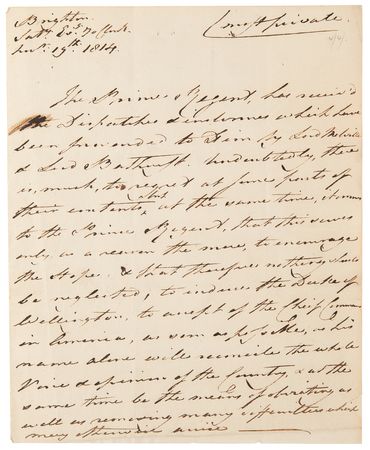 Brighton
(most private.
Satʸ Evᵍ 7 o'clock.
19ᵗʰ 1814.
The Prince Regent, has receiv'd
the Dispatches & inclosures which have
been forwarded to Him by Lord Melville
& Lord Bathurst. Undoubtedly, there
is, much, to regret at some parts of
their contents, but at the same time, it occurs
to the Prince Regent, that this serves
only as a reason the more, to encourage
the Hope, & that therefore nothing should
be neglected, to induce the Duke of
Wellington, to accept of the Chief Command
in America, as soon as possible, as his
name alone will reconcile the whole
Voice & opinion of the Country, & at the
same time be the means of obviating as
well as removing many difficulties which
may otherwise arise